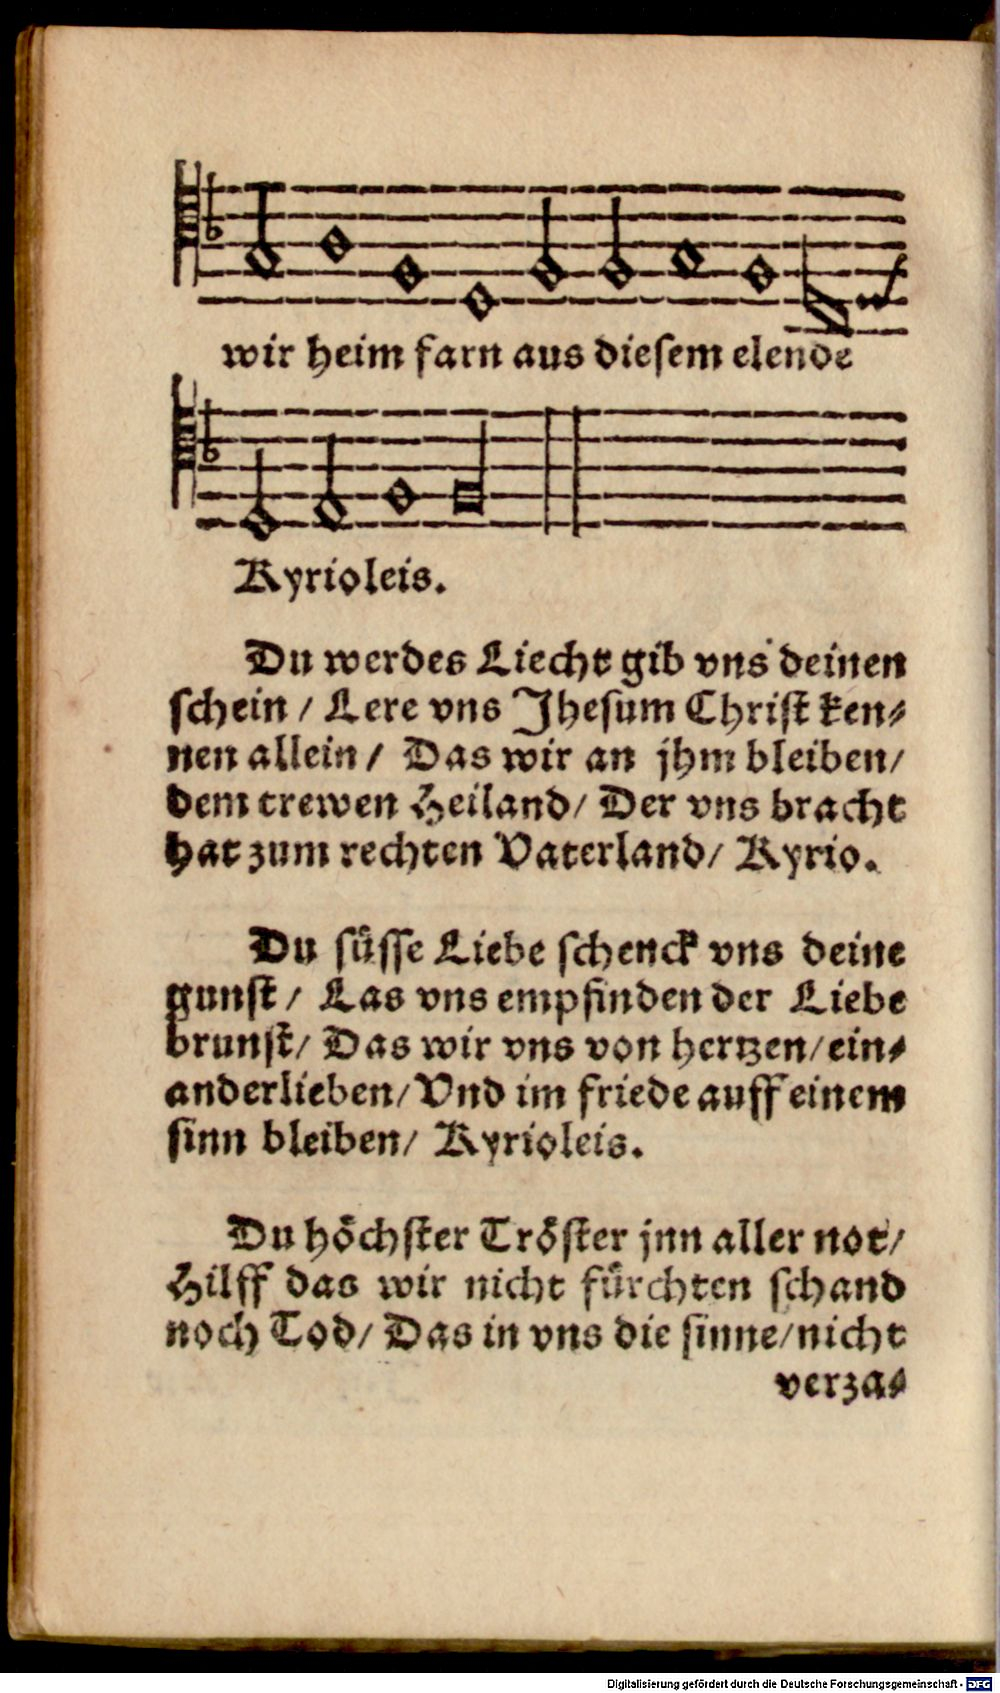 wir heim farn aus diesem elende
Kyrioleis.
Du werdes Liecht gib vns deinen
schein / Lere vns Jhesum Christ ken⸗
nen allein / Das wir an jhm bleiben/
dem trewen Heiland/ Der vns bracht
hat zum rechten Vaterland/ Kyrio.
Du süsse Liebe schenck vns deine
gunst / Las vns empfinden der Liebe
brunst/ Das wir vns von hertzen/ ein⸗
anderlieben/ Vnd im friede auff einem
sinn bleiben/ Kyrioleis.
Du höchster Tröster jnn aller not/
Hilff das wir nicht fürchten schand
noch Tod/ Das in vns die sinne/nicht
verza⸗
Digitalisierung gefördert durch die Deutsche Forschungsgemeinschaft - DFG